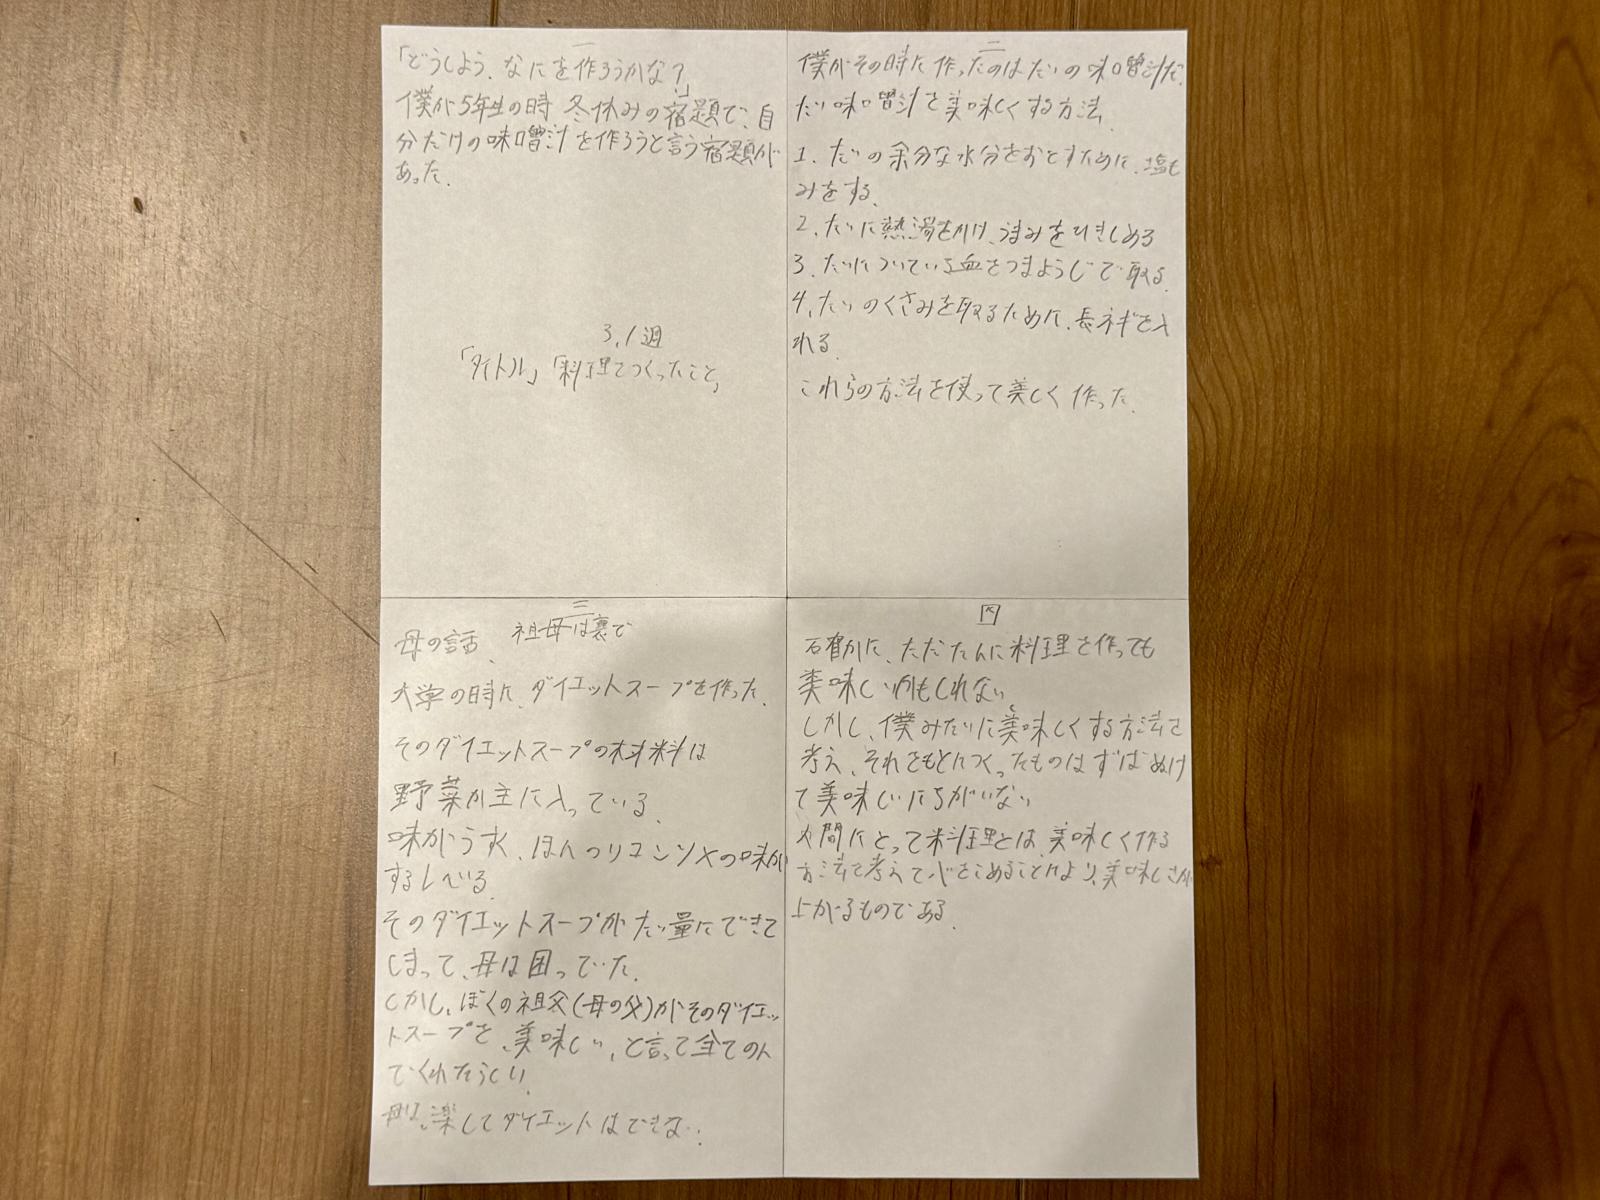 一
「どうしよう、なにを作ろうかな?」
僕が5年生の時 冬休みの宿題で、自
分だけの味噌汁を作ろうと言う宿題が
あった.
3.1週
「タイトル」「料理でつくったこと」
二
僕がその時に作ったのはたいの味噌汁だ.
たい味噌汁を美味しくする方法.
1. たいの余分な水分をおとすために、塩も
みをする.
2. たいに熱湯をかけ、うまみをひきしめる
3. たいについている血をつまようじで取る.
4. たいのくさみを取るために、長ネギを入
れる.
これらの方法を使って美しく作った.
三
母の話、 祖母は裏で
大学の時に、ダイエットスープを作った.
そのダイエットスープの材料は
野菜が主に入っている.
味がうすく、ほんのりコンソメの味が
する
そのダイエットスープがたい量にできて
しまって、母は困っていた.
しかし、ぼくの祖父(母の父)がそのダイエッ
トスープを、美味しい、と言って全てのん
でくれたらしい.
母は、楽してダイエットはできない.
四
確かに、ただたんに料理を作っても
美味しいかもしれない.
しかし、僕みたいに美味しくする方法を
考え、それをもとにつくったものはずばぬけ
て美味しいにちがいない
人間にとって料理とは、美味しく作る
方法を考えて心をこめることにより、美味しさが
上がるものである.